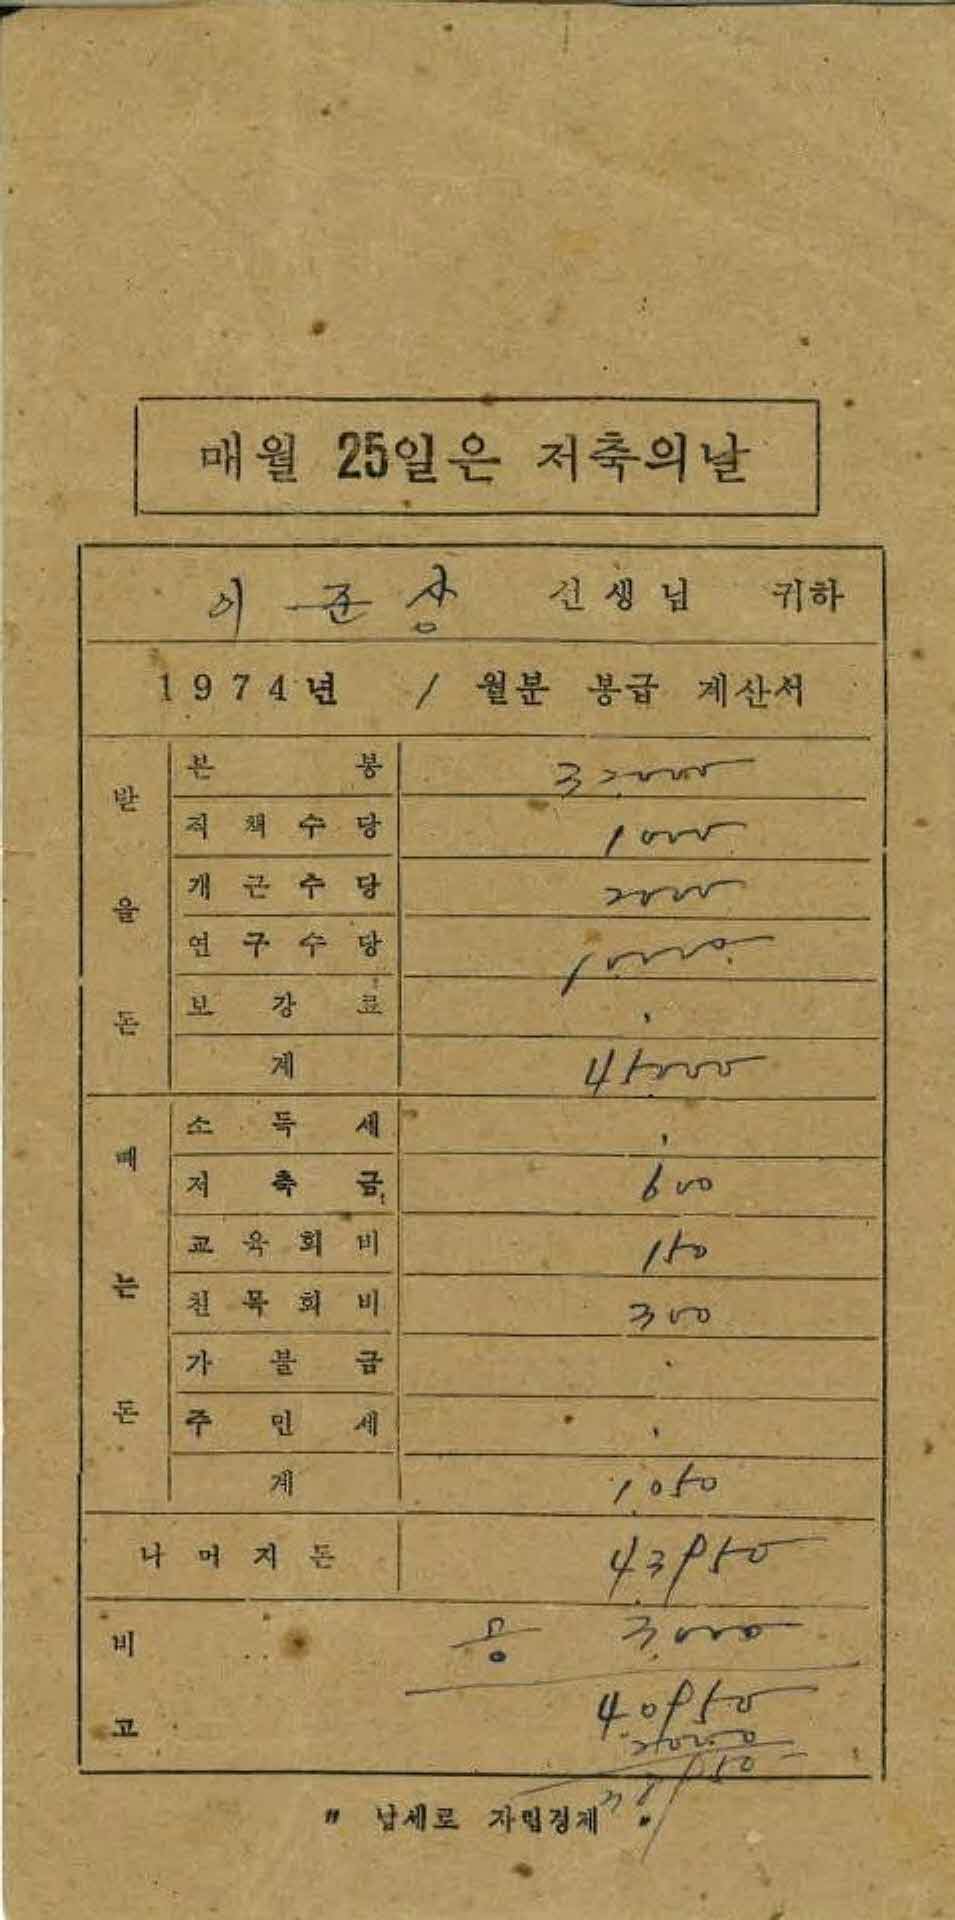 매월 25일은 저축의날
이 준 상 선생님 귀하
1974년 / 월분 봉급 계산서
받을돈
본봉 32,000
직책수당 1000
개근수당 2000
연구수당 10,000
보강료
계 45,000
떼는돈
소득세
저축금 600
교육회비 150
친목회비 300
가불금
주민세
계 1,050
나머지돈 43,950
비고
공 3,000
40,950
2000
38,950
" 납세로 자립경제 "